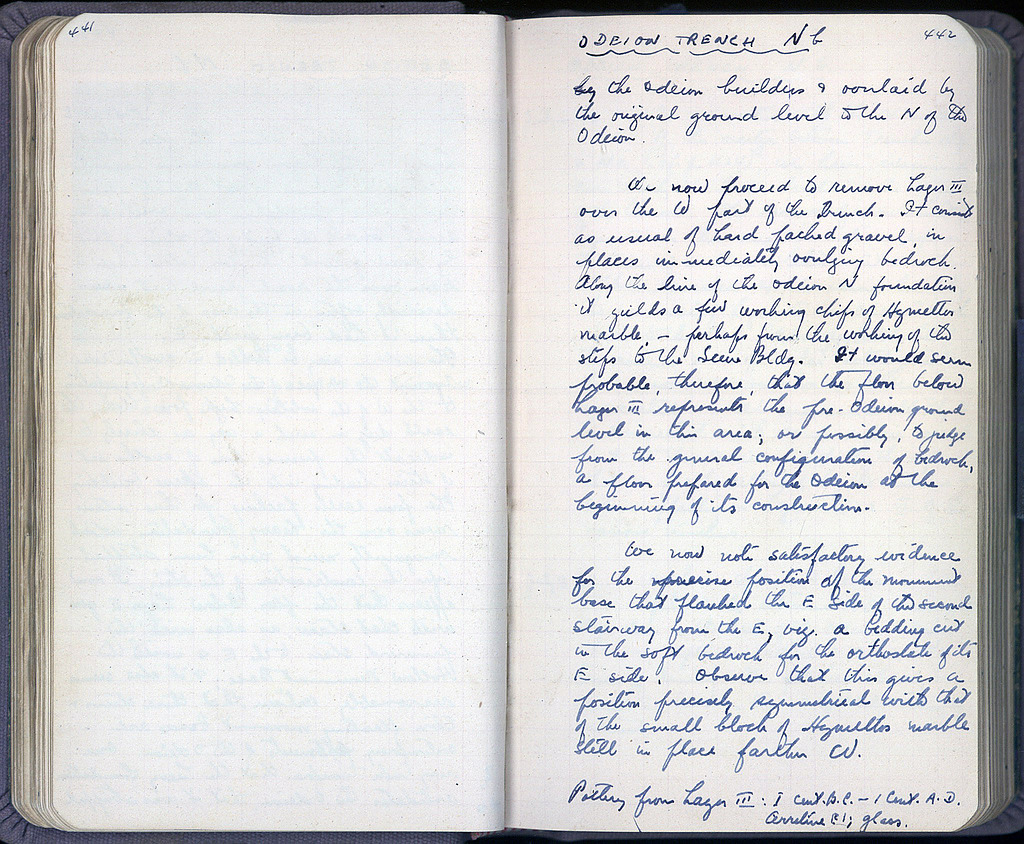 441
ODEION TRENCH N b
442
by the Odeion builders & overlaid by
the original ground level to the N of the
Odeion.
We now proceed to remove Layer III
over the W part of the Trench. It consists
as usual of hard packed gravel, in
places immediately overlying bedrock.
Along the line of the Odeion N foundation
it yields a few working chips of Hymettos
marble, - perhaps from the working of the
steps to the Scene Bldg. It would seem
probable, therefore, that the floor below
Layer III represents the pre-Odeion ground
level in this area; or possibly, to judge
from the general configuration of bedrock,
a floor prepared for the Odeion at the
beginning of its construction.
We now note satisfactory evidence
for the precise position of the monument
base that flanked the E side of the second
stairway from the E, viz. a bedding cut
in the soft bedrock for the orthostate of its
E side. Observe that this gives a
position precisely symmetrical with that
of the small block of Hymettos marble
still in place farther W.
Pottery from Layer III: I cent. B.C. - I Cent. A.D.
Arretine ; glass.